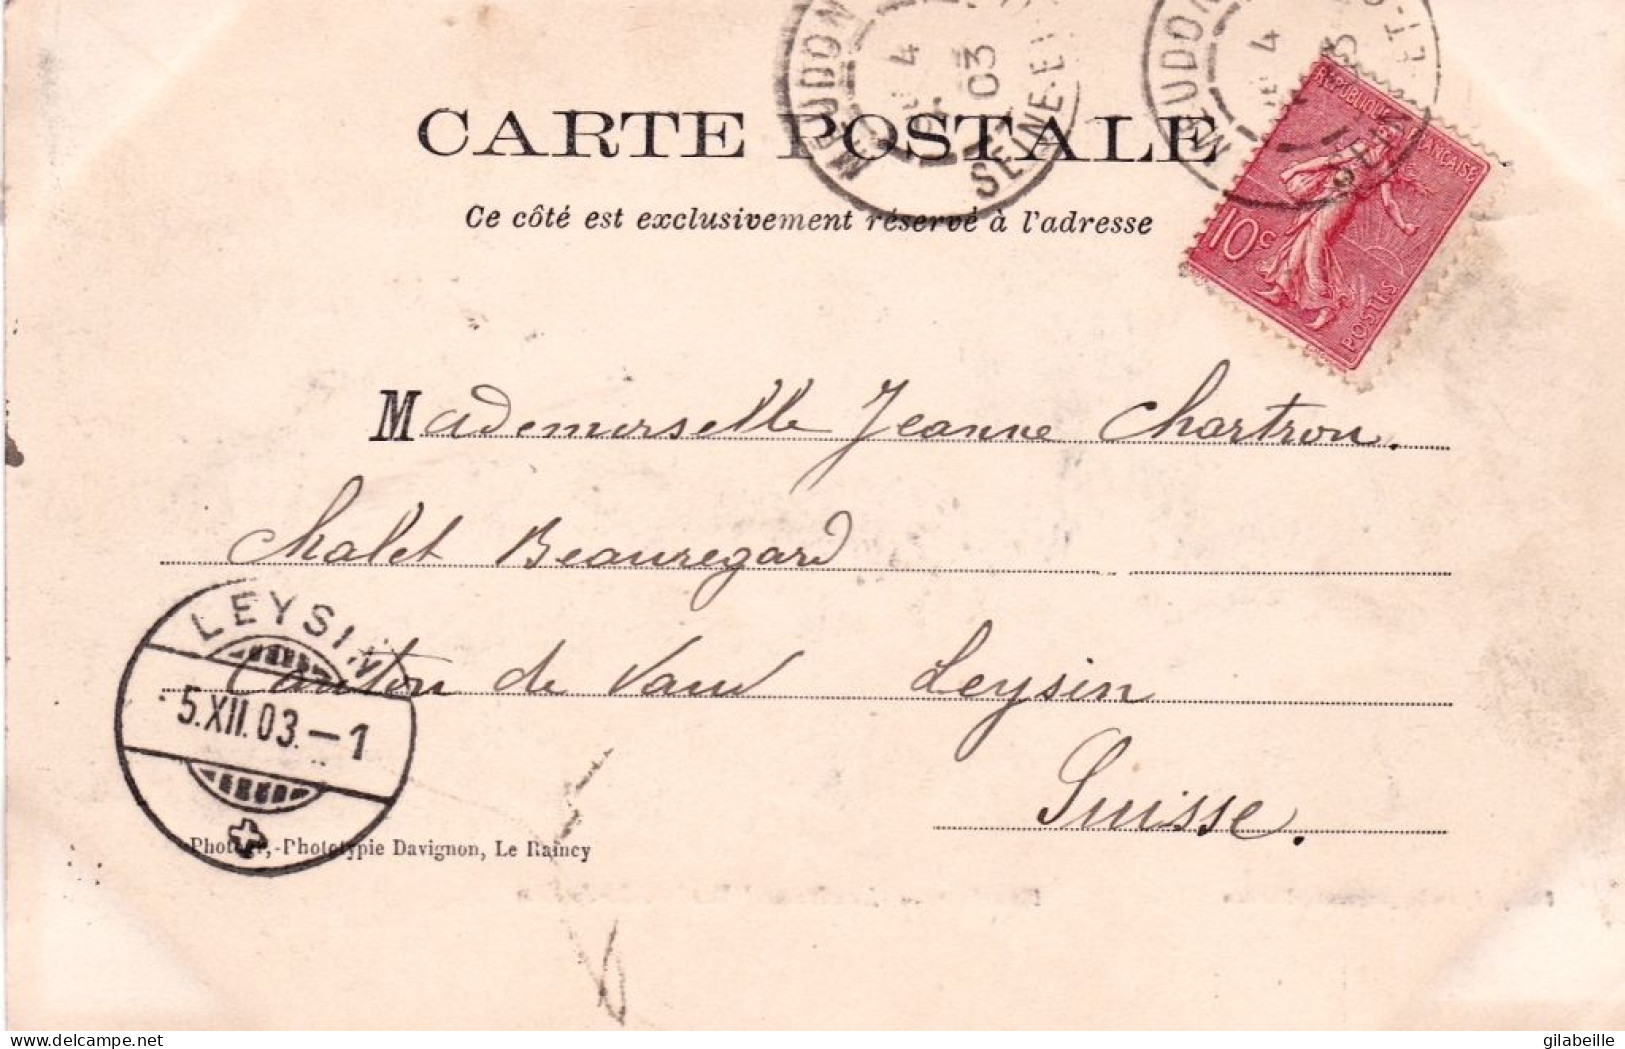 MEUDON
4
03
SEINE-ET
MEUDON
4
ET-O
RÉPUBLIQUE FRANÇAISE
10c
POSTES
CARTE POSTALE
Ce côté est exclusivement réservé à l'adresse
Mademoiselle Jeanne Chartron.
Chalet Beauregard
Canton de Vaud Leysin
Suisse.
LEYSIN
5.XII.03.-1
-Phototypie Davignon, Le Raincy
delcampe.net
gilabeille